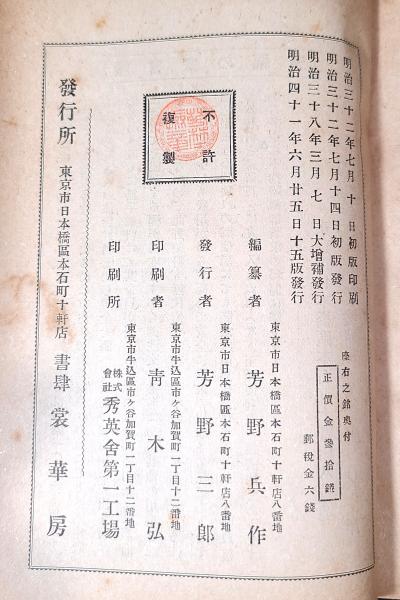 明治三十二年七月十日初版印刷
明治三十二年七月十四日初版發行
明治三十八年三月七日大增補發行
明治四十一年六月廿五日十五版發行
座右之銘奥付
正價金參拾錢
郵税金六錢
不許
複製
編纂者
東京市日本橋區本石町十軒店八番地
芳野兵作
發行者
東京市日本橋區本石町十軒店八番地
芳野三郎
印刷者
東京市牛込區市ヶ谷加賀町一丁目十二番地
青木弘
印刷所
東京市牛込區市ヶ谷加賀町一丁目十二番地
株式會社秀英舍第一工場
發行所
東京市日本橋區本石町十軒店
書肆裳華房